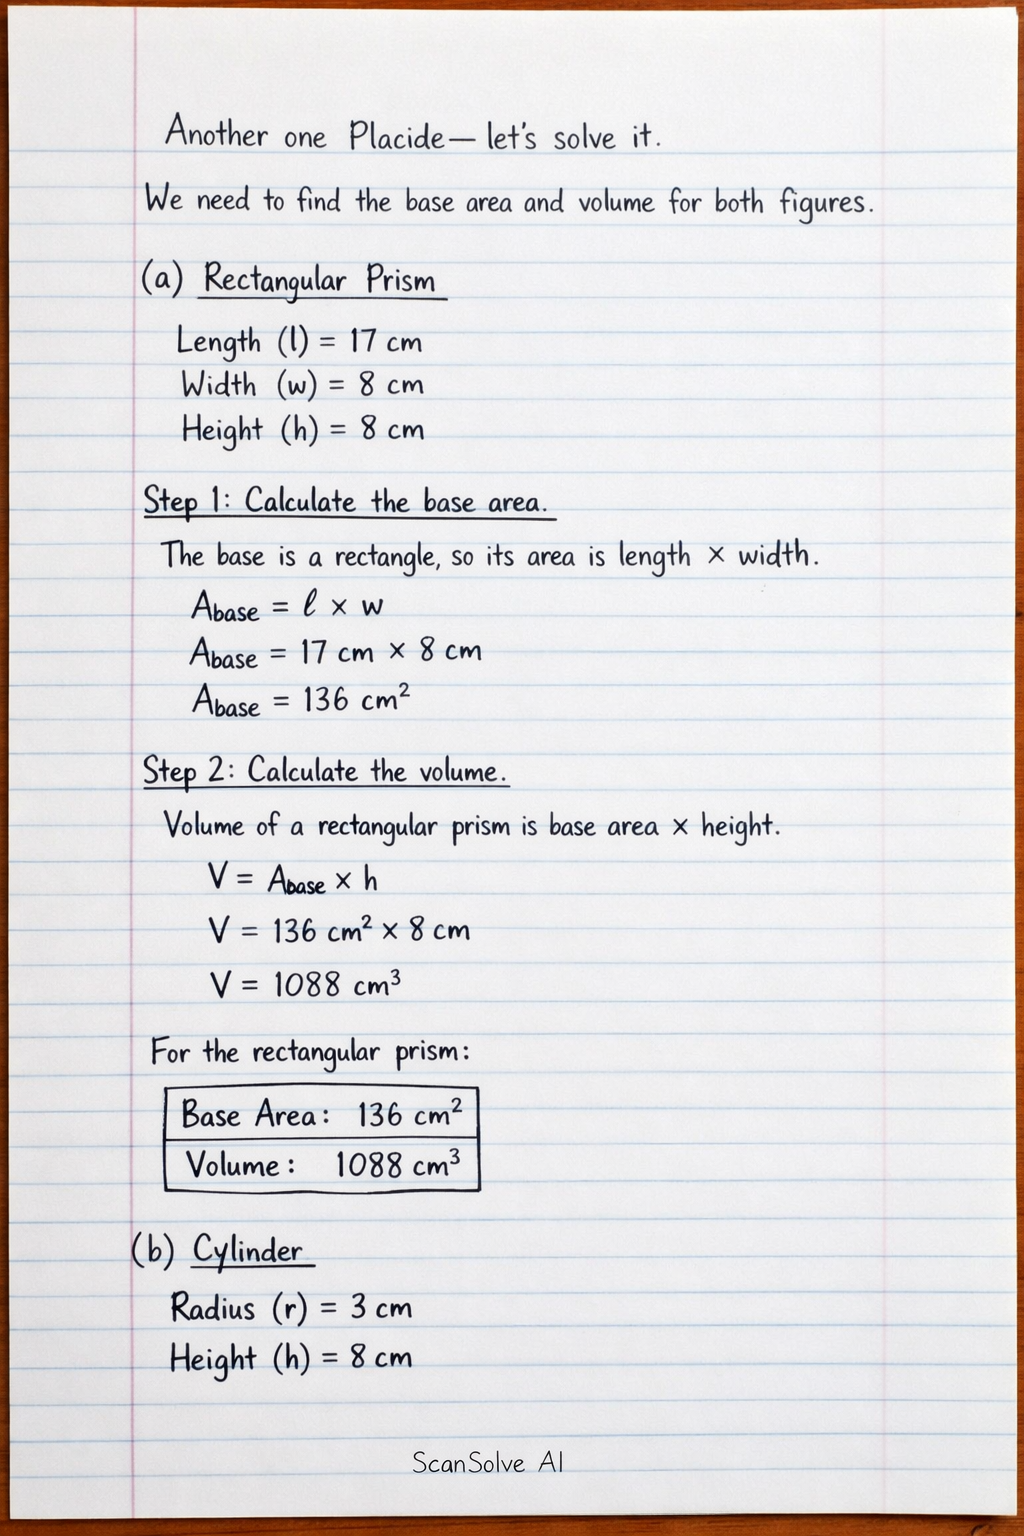 Another one Placide— let's solve it.
We need to find the base area and volume for both figures.
(a) Rectangular Prism
Length (l) = 17 cm
Width (w) = 8 cm
Height (h) = 8 cm
Step 1: Calculate the base area.
The base is a rectangle, so its area is length × width.
Abase = ℓ × w
Abase = 17 cm × 8 cm
Abase = 136 cm²
Step 2: Calculate the volume.
Volume of a rectangular prism is base area × height.
V = Abase × h
V = 136 cm² × 8 cm
V = 1088 cm³
For the rectangular prism:
Base Area: 136 cm²
Volume: 1088 cm³
(b) Cylinder
Radius (r) = 3 cm
Height (h) = 8 cm
ScanSolve AI